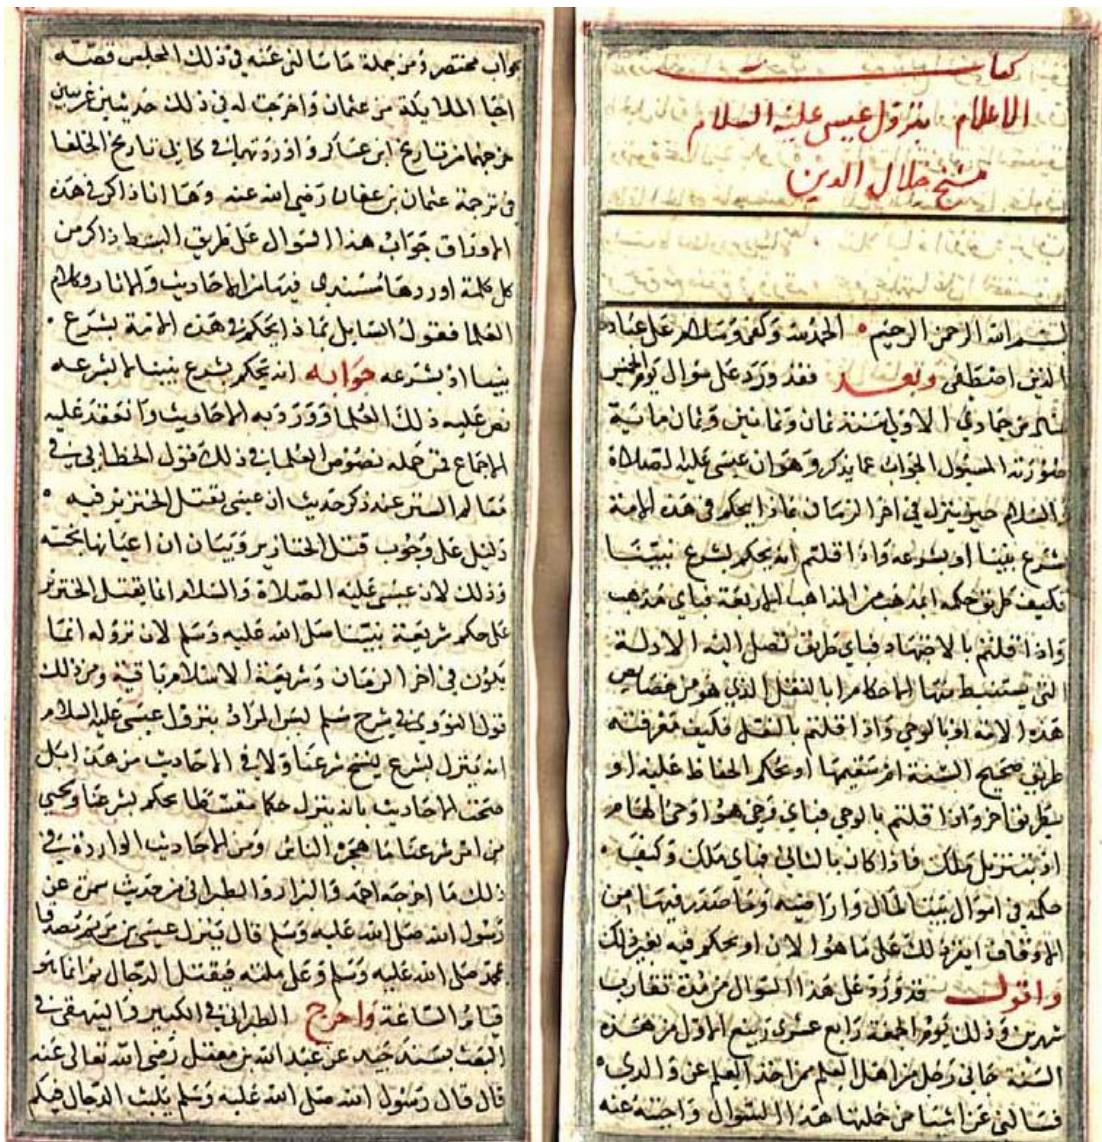 كتاب
الاعلام بنزول عيسى عليه السلام
شيخ جلال الدين
بسم الله الرحمن الرحيم الحمد لله وكفى وسلام على عباده
الذين اصطفى وبعد فقد ورد على سوال يوم الخميس
من جمادي الاولى سنة ثمان وثمانين وثمان مائية
صورته المسئول الجواب عما يذكر وهو ان عيسى عليه الصلاة
والسلام حين ينزل في اخر الزمان بماذا يحكم في هذه الامة
بشرع نبينا او بشرعه واذا قلتم انه يحكم بشرع نبينا
فكيف طريق حكمه ابمذهب من المذاهب الاربعة فباي مذهب
واذا قلتم بالاجتهاد فباي طريق تصل اليه الادلة
التي يستنبط منها الاحكام ابالنقل الذي هو من خصايص
هذه الامة او بالوحي واذا قلتم بالنقل فكيف معرفته
طريق صحيح السنة من سقيمها او بحكم الحفاظ عليه او
بطريق اخر واذا قلتم بالوحي فباي وحي هو اوحي الهام
او بتنزيل ملك فاذا كان بالثاني فباي ملك وكيف
حكمه في اموال بيت المال واراضيه وما صدر فيها من
الاوقاف ايقر ذلك على ما هو الان او يحكم فيه بغير ذلك
واقول قد ورد على هذا السوال من مدة تقارب
شهرين وذلك يوم الجمعة رابع عشرى ربيع الاول من هذه
السنة جاني رجل من اهل العلم ممن اخذ العلم عن والدي
فسالني عن اشيا من جملتها هذا السوال واجبته عنه
بجواب مختصر ومن جملة ما سالني عنه في ذلك المجلس قصة
احيا الملايكة من عثمان واخرجت له في ذلك حديثين غريبين
من تاريخ ابن عساكر واوردتهما في كتابي تاريخ الخلفا
في ترجمة عثمان بن عفان رضي الله عنه وها انا ذاكر في هذه
الاوراق جواب هذا السوال على طريق البسط ذاكر من
كل كلمة اوردها مستندى فيها من الاحاديث والاثار وكلام
العلما فقول السايل بماذا يحكم في هذه الامة بشرع
نبينا او بشرعه جوابه انه يحكم بشرع نبينا لا بشرعه
نص على ذلك العلما ووردت به الاحاديث وانعقد عليه
الاجماع فمن جملة نصوص العلما في ذلك قول الخطابي في
معالم السنن عند ذكر حديث ان عيسى يقتل الخنزير فيه
دليل على وجوب قتل الخنازير وبيان ان اعيانها نجسة
وذلك لان عيسى عليه الصلاة والسلام انما يقتل الخنزير
على حكم شريعة نبينا صلى الله عليه وسلم لان نزوله انما
يكون في اخر الزمان وشريعة الاسلام باقية ومن ذلك
قول النووي في شرح مسلم ليس المراد بنزول عيسى عليه السلام
انه ينزل بشرع ينسخ شرعنا ولا في الاحاديث من هذا شي بل
صحت الاحاديث بانه ينزل حكما مقسطا يحكم بشرعنا ويحيي
من امر شرعنا ما هجره الناس ومن الاحاديث الواردة في
ذلك ما اخرجه احمد والبزار والطبراني من حديث سمرة عن
رسول الله صلى الله عليه وسلم قال ينزل عيسى بن مريم مصدقا
بمحمد صلى الله عليه وسلم وعلى ملته فيقتل الدجال ثم انما هو
قيام الساعة واخرج الطبراني في الكبير والبيهقي في
البعث بسند جيد عن عبد الله بن مغفل رضى الله تعالى عنه
قال قال رسول الله صلى الله عليه وسلم يلبث الدجال فيكم